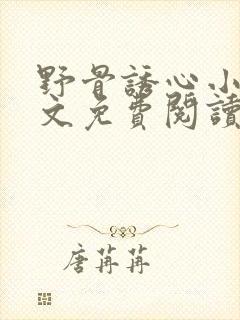 野骨誘心小
文免費閱讀
唐苒苒